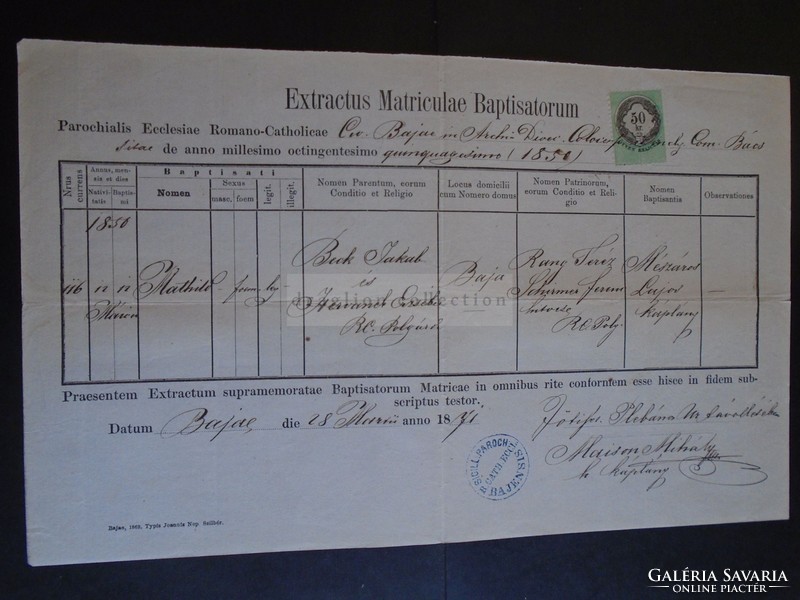 Extractus Matriculae Baptisatorum
50
kr.
Parochialis Ecclesiae Romano-Catholicae Bajae in Com. Bács
sitae de anno millesimo octingentesimo quinquagesimo (1850)
Nrus currens
Annus, mensis et dies
Nativitatis
Baptismi
Baptisati
Nomen
Sexus
masc.
foem
legit.
illegit.
Nomen Parentum, eorum Conditio et Religio
Locus domicilii cum Nomero domus
Nomen Patrinorum, eorum Conditio et Religio
Nomen Baptisantis
Observationes
1850
116
Mathild
foem
leg
Beck Jakab
és
RC. Polgárok
Baja
Teréz
Ferenc
RC Polg.
Mészáros
Lajos
káplány
collection
Praesentem Extractum supramemoratae Baptisatorum Matricae in omnibus rite conformem esse hisce in fidem subscriptus testor.
Datum Bajae, die 28 Martii anno 1871
Plébános Úr távollétében
Maison Mihály
káplány
SIGILL. PAROCH.
CATH. ECCL.
BAJENSIS
Bajae, 1869. Typis Joannis Nep.
GALÉRIA SAVARIA
ONLINE PIACTÉR